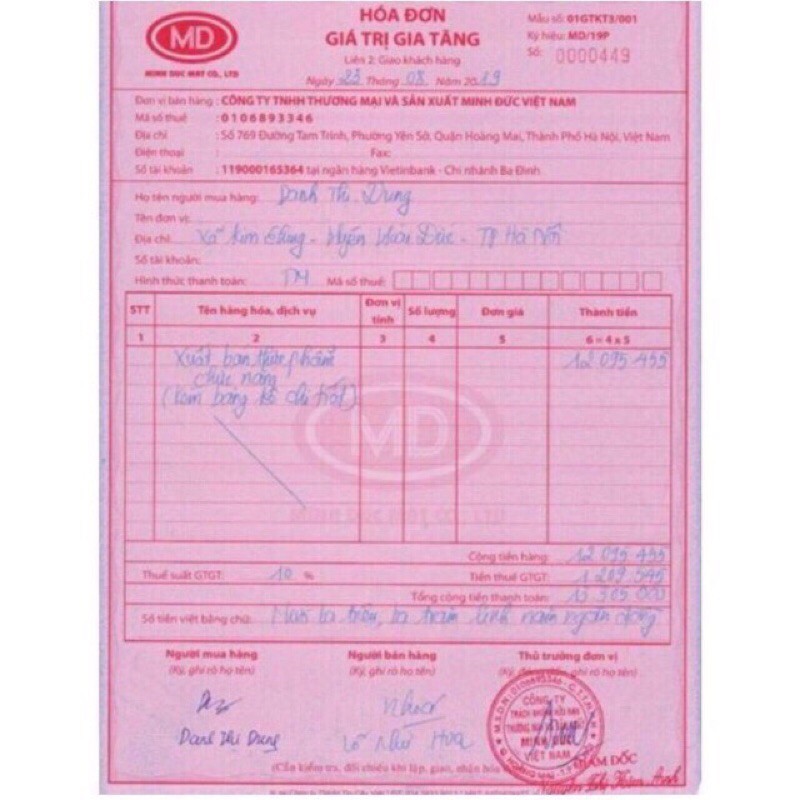 MD
MINH DUC MAT CO., LTD
HÓA ĐƠN
GIÁ TRỊ GIA TĂNG
Liên 2: Giao khách hàng
Ngày 23 Tháng 08 Năm 2019
Mẫu số: 01GTKT3/001
Ký hiệu: MD/19P
Số: 0000449
Đơn vị bán hàng : CÔNG TY TNHH THƯƠNG MẠI VÀ SẢN XUẤT MINH ĐỨC VIỆT NAM
Mã số thuế : 0106893346
Địa chỉ : Số 769 Đường Tam Trinh, Phường Yên Sở, Quận Hoàng Mai, Thành Phố Hà Nội, Việt Nam
Điện thoại : Fax:
Số tài khoản : 119000165364 tại ngân hàng Vietinbank - Chi nhánh Ba Đình
Họ tên người mua hàng: Danh Thị Dung
Tên đơn vị:
Địa chỉ: Xã Kim Chung - Huyện Hoài Đức - TP Hà Nội
Số tài khoản:
Hình thức thanh toán: TM Mã số thuế:
STT Tên hàng hóa, dịch vụ Đơn vị tính Số lượng Đơn giá Thành tiền
1 2 3 4 5 6 = 4 x 5
Xuất bán thực phẩm 12 095 455
chức năng
(kèm bảng kê chi tiết)
MD
MINH DUC MAT CO., LTD
Cộng tiền hàng: 12 095 455
Thuế suất GTGT: 10 % Tiền thuế GTGT: 1 209 545
Tổng cộng tiền thanh toán: 13 305 000
Số tiền viết bằng chữ: Mười ba triệu, ba trăm linh năm ngàn đồng
Người mua hàng Người bán hàng Thủ trưởng đơn vị
(Ký, ghi rõ họ tên) (Ký, ghi rõ họ tên) (Ký, ghi rõ họ tên)
Danh Thị Dung
Như Hoa
M.S.D.N: 0106893346 - C.T.T.N.H.H
CÔNG TY
TRÁCH NHIỆM HỮU HẠN
THƯƠNG MẠI VÀ SẢN XUẤT
MINH ĐỨC
VIỆT NAM
GIÁM ĐỐC
Nguyễn Thị Kim Anh
(Cần kiểm tra, đối chiếu khi lập, giao, nhận hóa